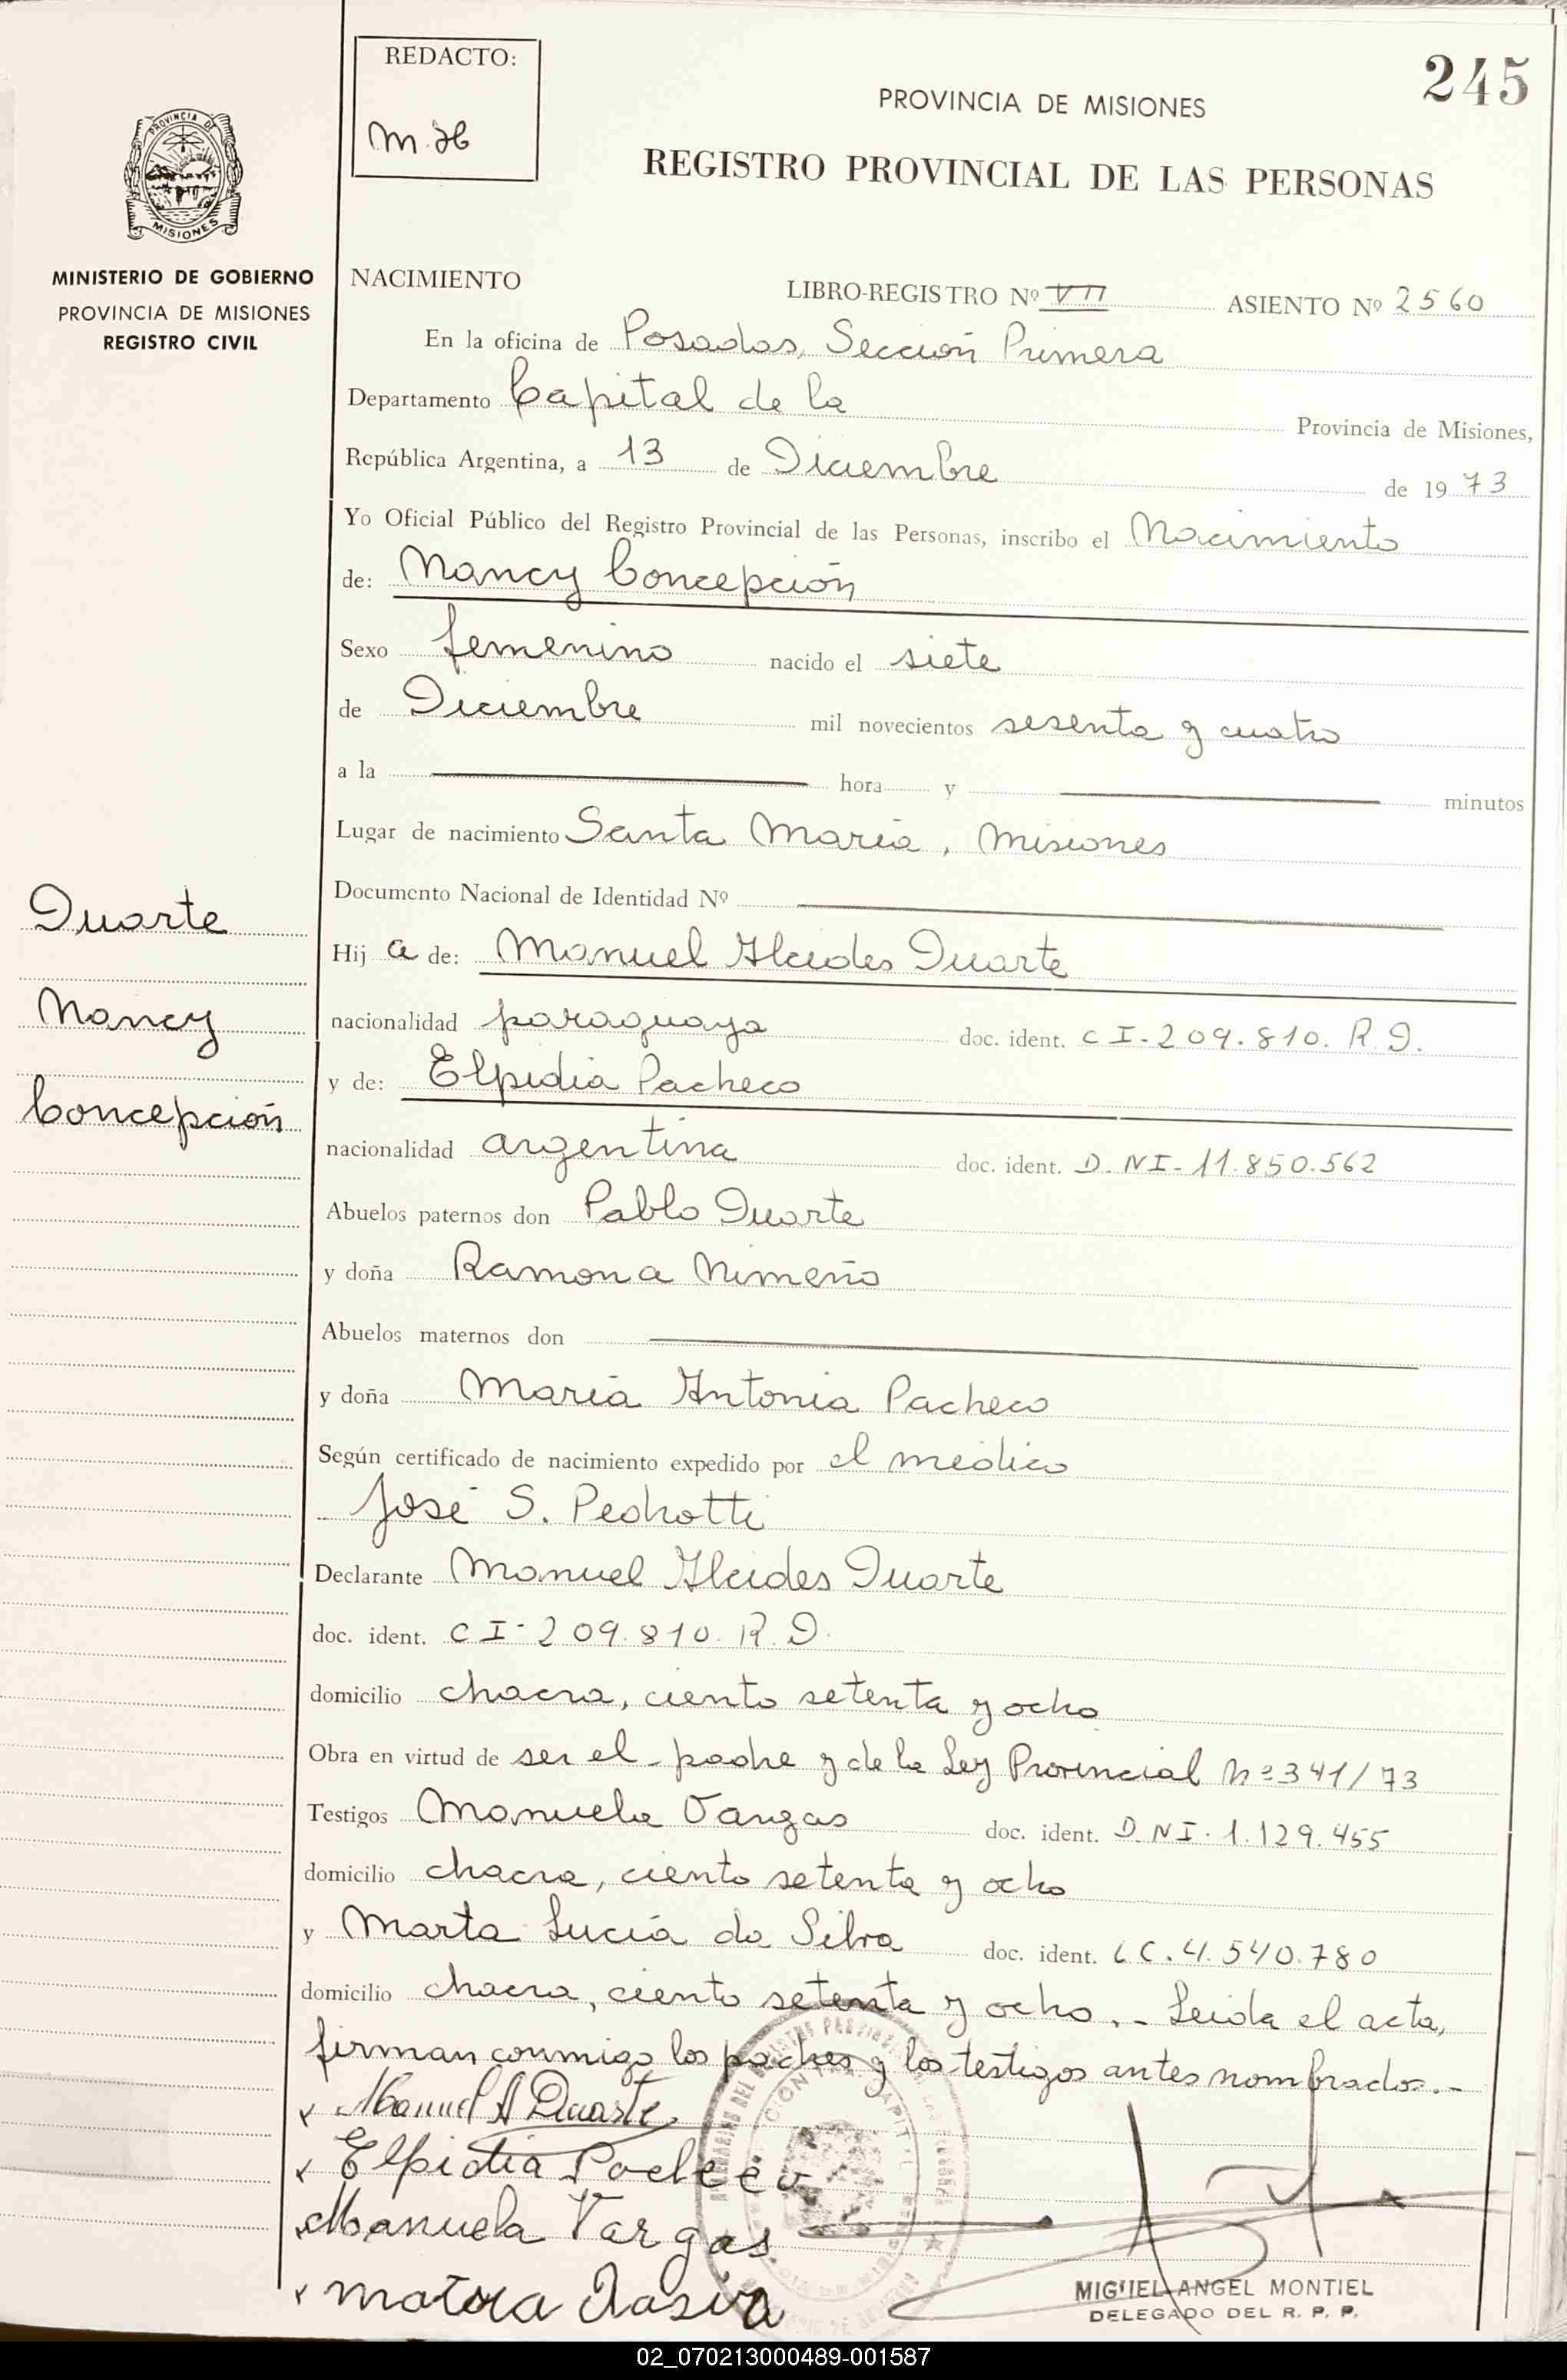 245
REDACTO:
M.H
PROVINCIA DE MISIONES
REGISTRO PROVINCIAL DE LAS PERSONAS
PROVINCIA DE
MISIONES
MINISTERIO DE GOBIERNO
PROVINCIA DE MISIONES
REGISTRO CIVIL
NACIMIENTO LIBRO-REGISTRO Nº VII ASIENTO Nº 2560
En la oficina de Posadas, Sección Primera
Departamento Capital de la Provincia de Misiones,
República Argentina, a 13 de Diciembre de 1973
Yo Oficial Público del Registro Provincial de las Personas, inscribo el Nacimiento
de: Nancy Concepción
Sexo femenino nacido el siete
de Diciembre mil novecientos sesenta y cuatro
a la hora y minutos
Lugar de nacimiento Santa María, Misiones
Documento Nacional de Identidad Nº
Duarte
Nancy
Concepción
Hij a de: Manuel Alcides Duarte
nacionalidad paraguaya doc. ident. C I-209.810. R.D.
y de: Elpidia Pacheco
nacionalidad argentina doc. ident. D.NI-11.850.562
Abuelos paternos don Pablo Duarte
y doña Ramona Nimeño
Abuelos maternos don
y doña María Antonia Pacheco
Según certificado de nacimiento expedido por el médico
José S. Pedrotti
Declarante Manuel Alcides Duarte
doc. ident. C I-209.810. R.D.
domicilio chacra, ciento setenta y ocho
Obra en virtud de ser el padre y de la Ley Provincial Nº 341/73
Testigos Manuela Vargas doc. ident. D.NI.1.129.455
domicilio chacra, ciento setenta y ocho
y Marta Lucía da Silva doc. ident. L.C.4.540.780
domicilio chacra, ciento setenta y ocho.- Leída el acta,
firman conmigo los padres y los testigos antes nombrados.-
Manuel A Duarte
Elpidia Pacheco
Manuela Vargas
MIGUEL ANGEL MONTIEL
DELEGADO DEL R. P. P.
02_070213000489-001587